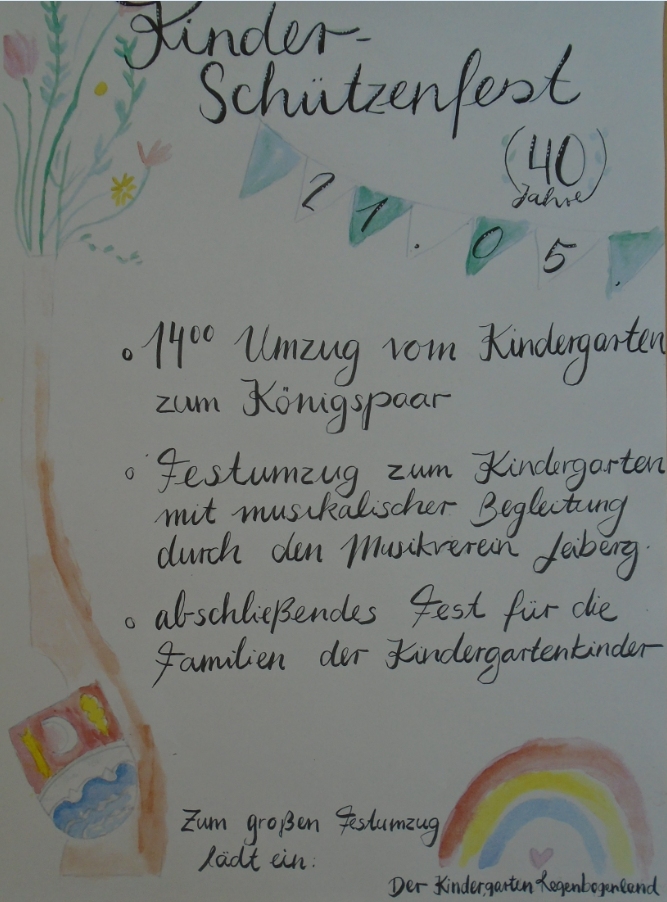 Kinder-
Schützenfest
(40
Jahre)
21.05.
• 14⁰⁰ Umzug vom Kindergarten
zum Königspaar
• Festumzug zum Kindergarten
mit musikalischer Begleitung
durch den Musikverein Leiberg.
• abschließendes Fest für die
Familien der Kindergartenkinder
Zum großen Festumzug
lädt ein:
Der Kindergarten Regenbogenland